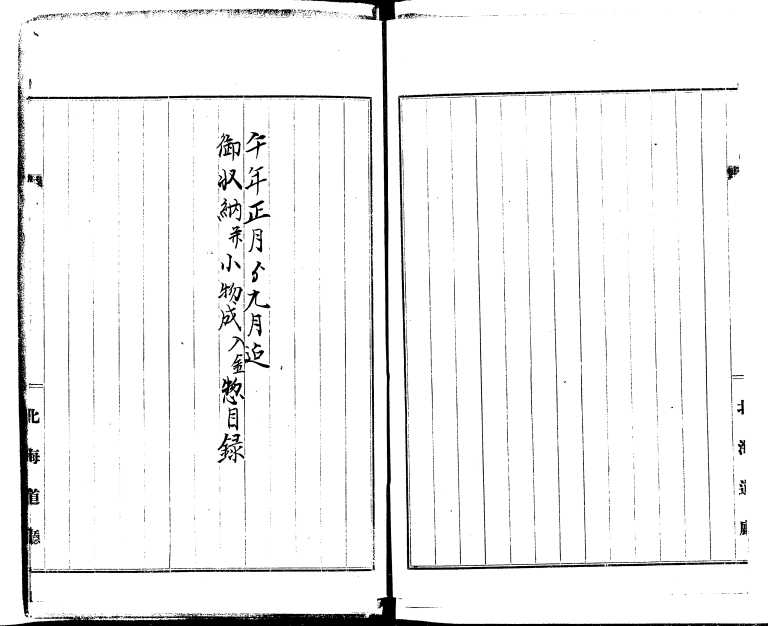 午年正月ゟ九月迄
御収納并小物成入金惣目録
北海道廳
北海道廳